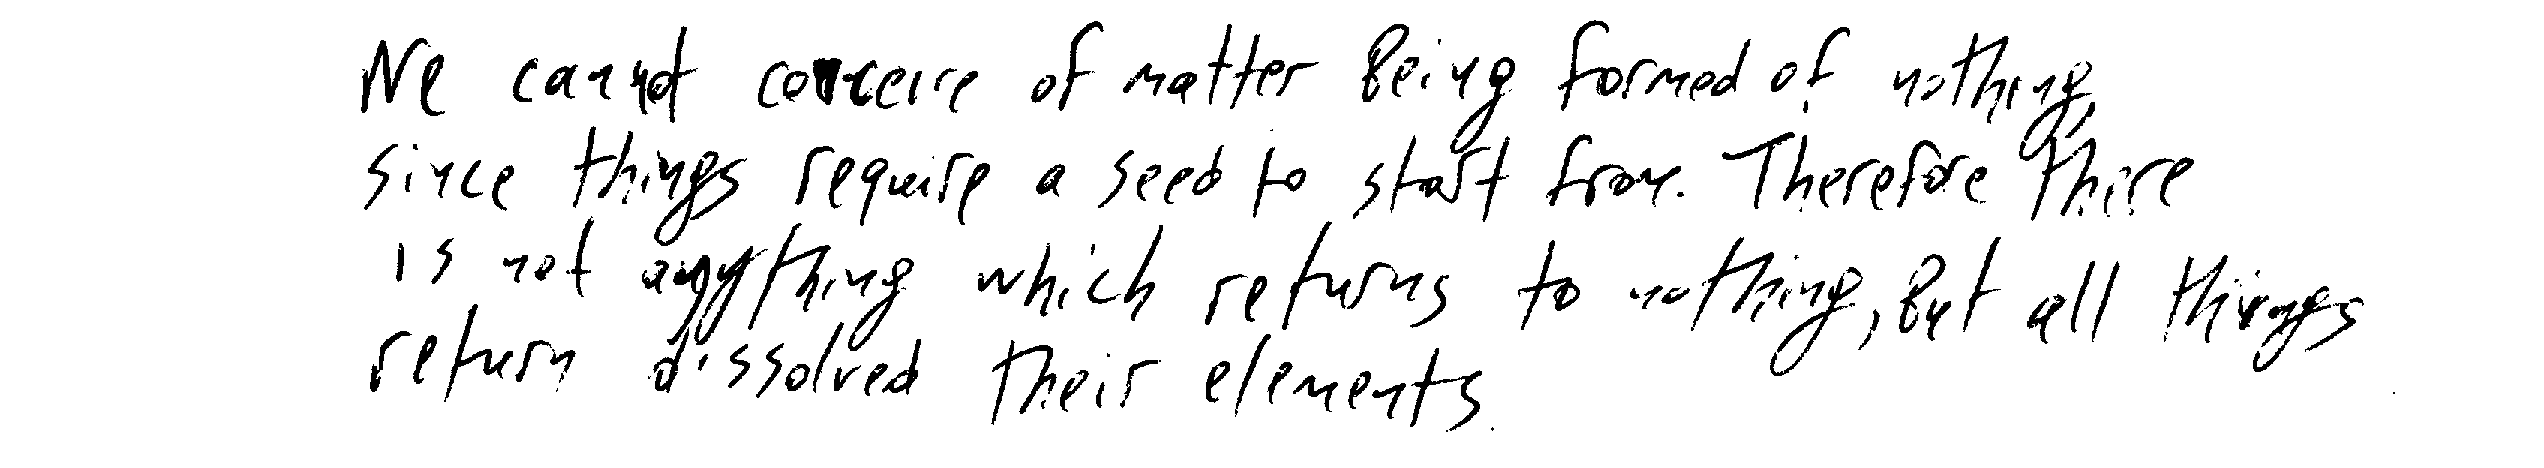 We cannot conceive of matter being formed of nothing,
since things require a seed to start from. Therefore there
is not anything which returns to nothing, but all things
return dissolved their elements.